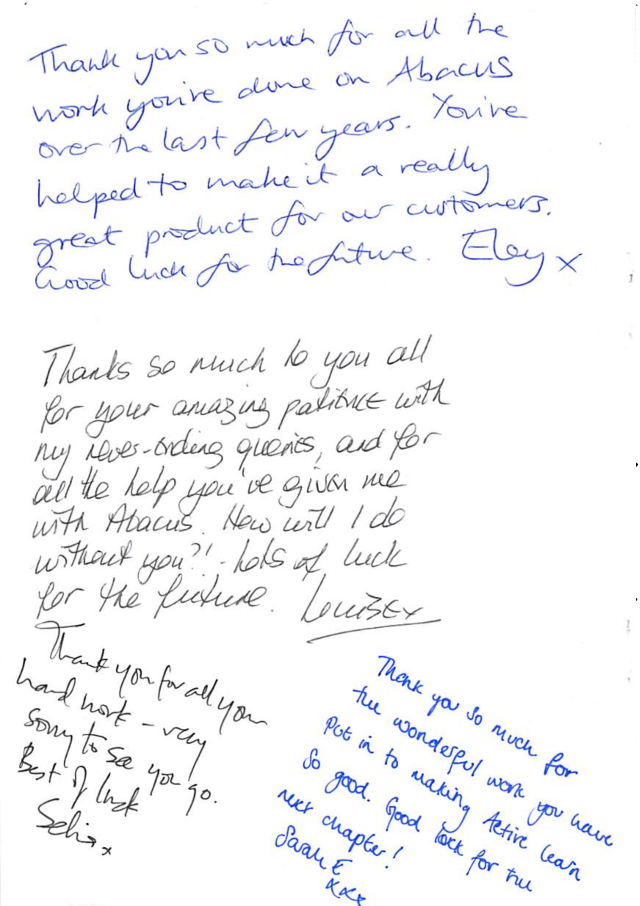 Thank you so much for all the
work you've done on Abacus
over the last few years. You've
helped to make it a really
great product for our customers.
Good luck for the future. Eley x
Thanks so much to you all
for your amazing patience with
my never-ending queries, and for
all the help you've given me
with Abacus. How will I do
without you?! Lots of luck
for the future. Louise x
Thank you for all your
hard work - very
sorry to see you go.
Best of luck
x
Thank you so much for
the wonderful work you have
put in to making Active Learn
so good. Good luck for the
next chapter!
Sarah E
xxx